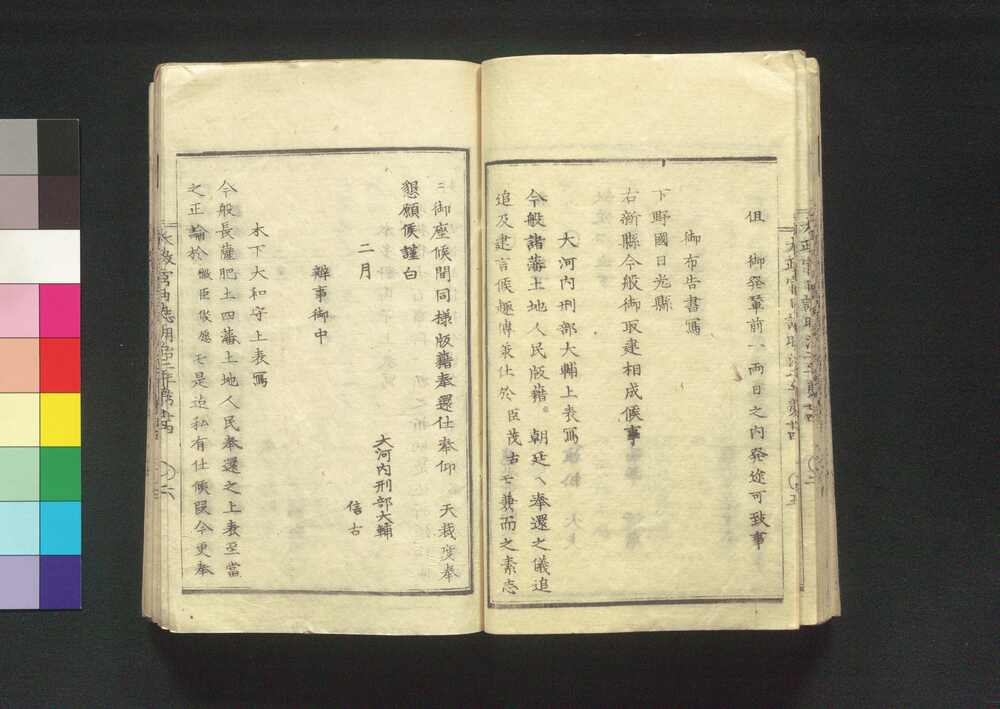 但　御発輦前一両日之内発途可致事
御布告書写
下野國日光縣
右新縣今般御取建相成候事
大河内刑部大輔上表写
今般諸藩土地人民版籍。朝廷へ奉還之儀追
追及建言候趣傳承仕於臣茂古モ兼而之素志
ニ御座候間同様版籍奉還仕奉仰　天裁度奉
懇願候謹白
二月
大河内刑部大輔
信古
辨事御中
木下大和守上表写
今般長薩肥土四藩土地人民奉還之上表至當
之正論於微臣俊愿モ是迄私有仕候段今更奉